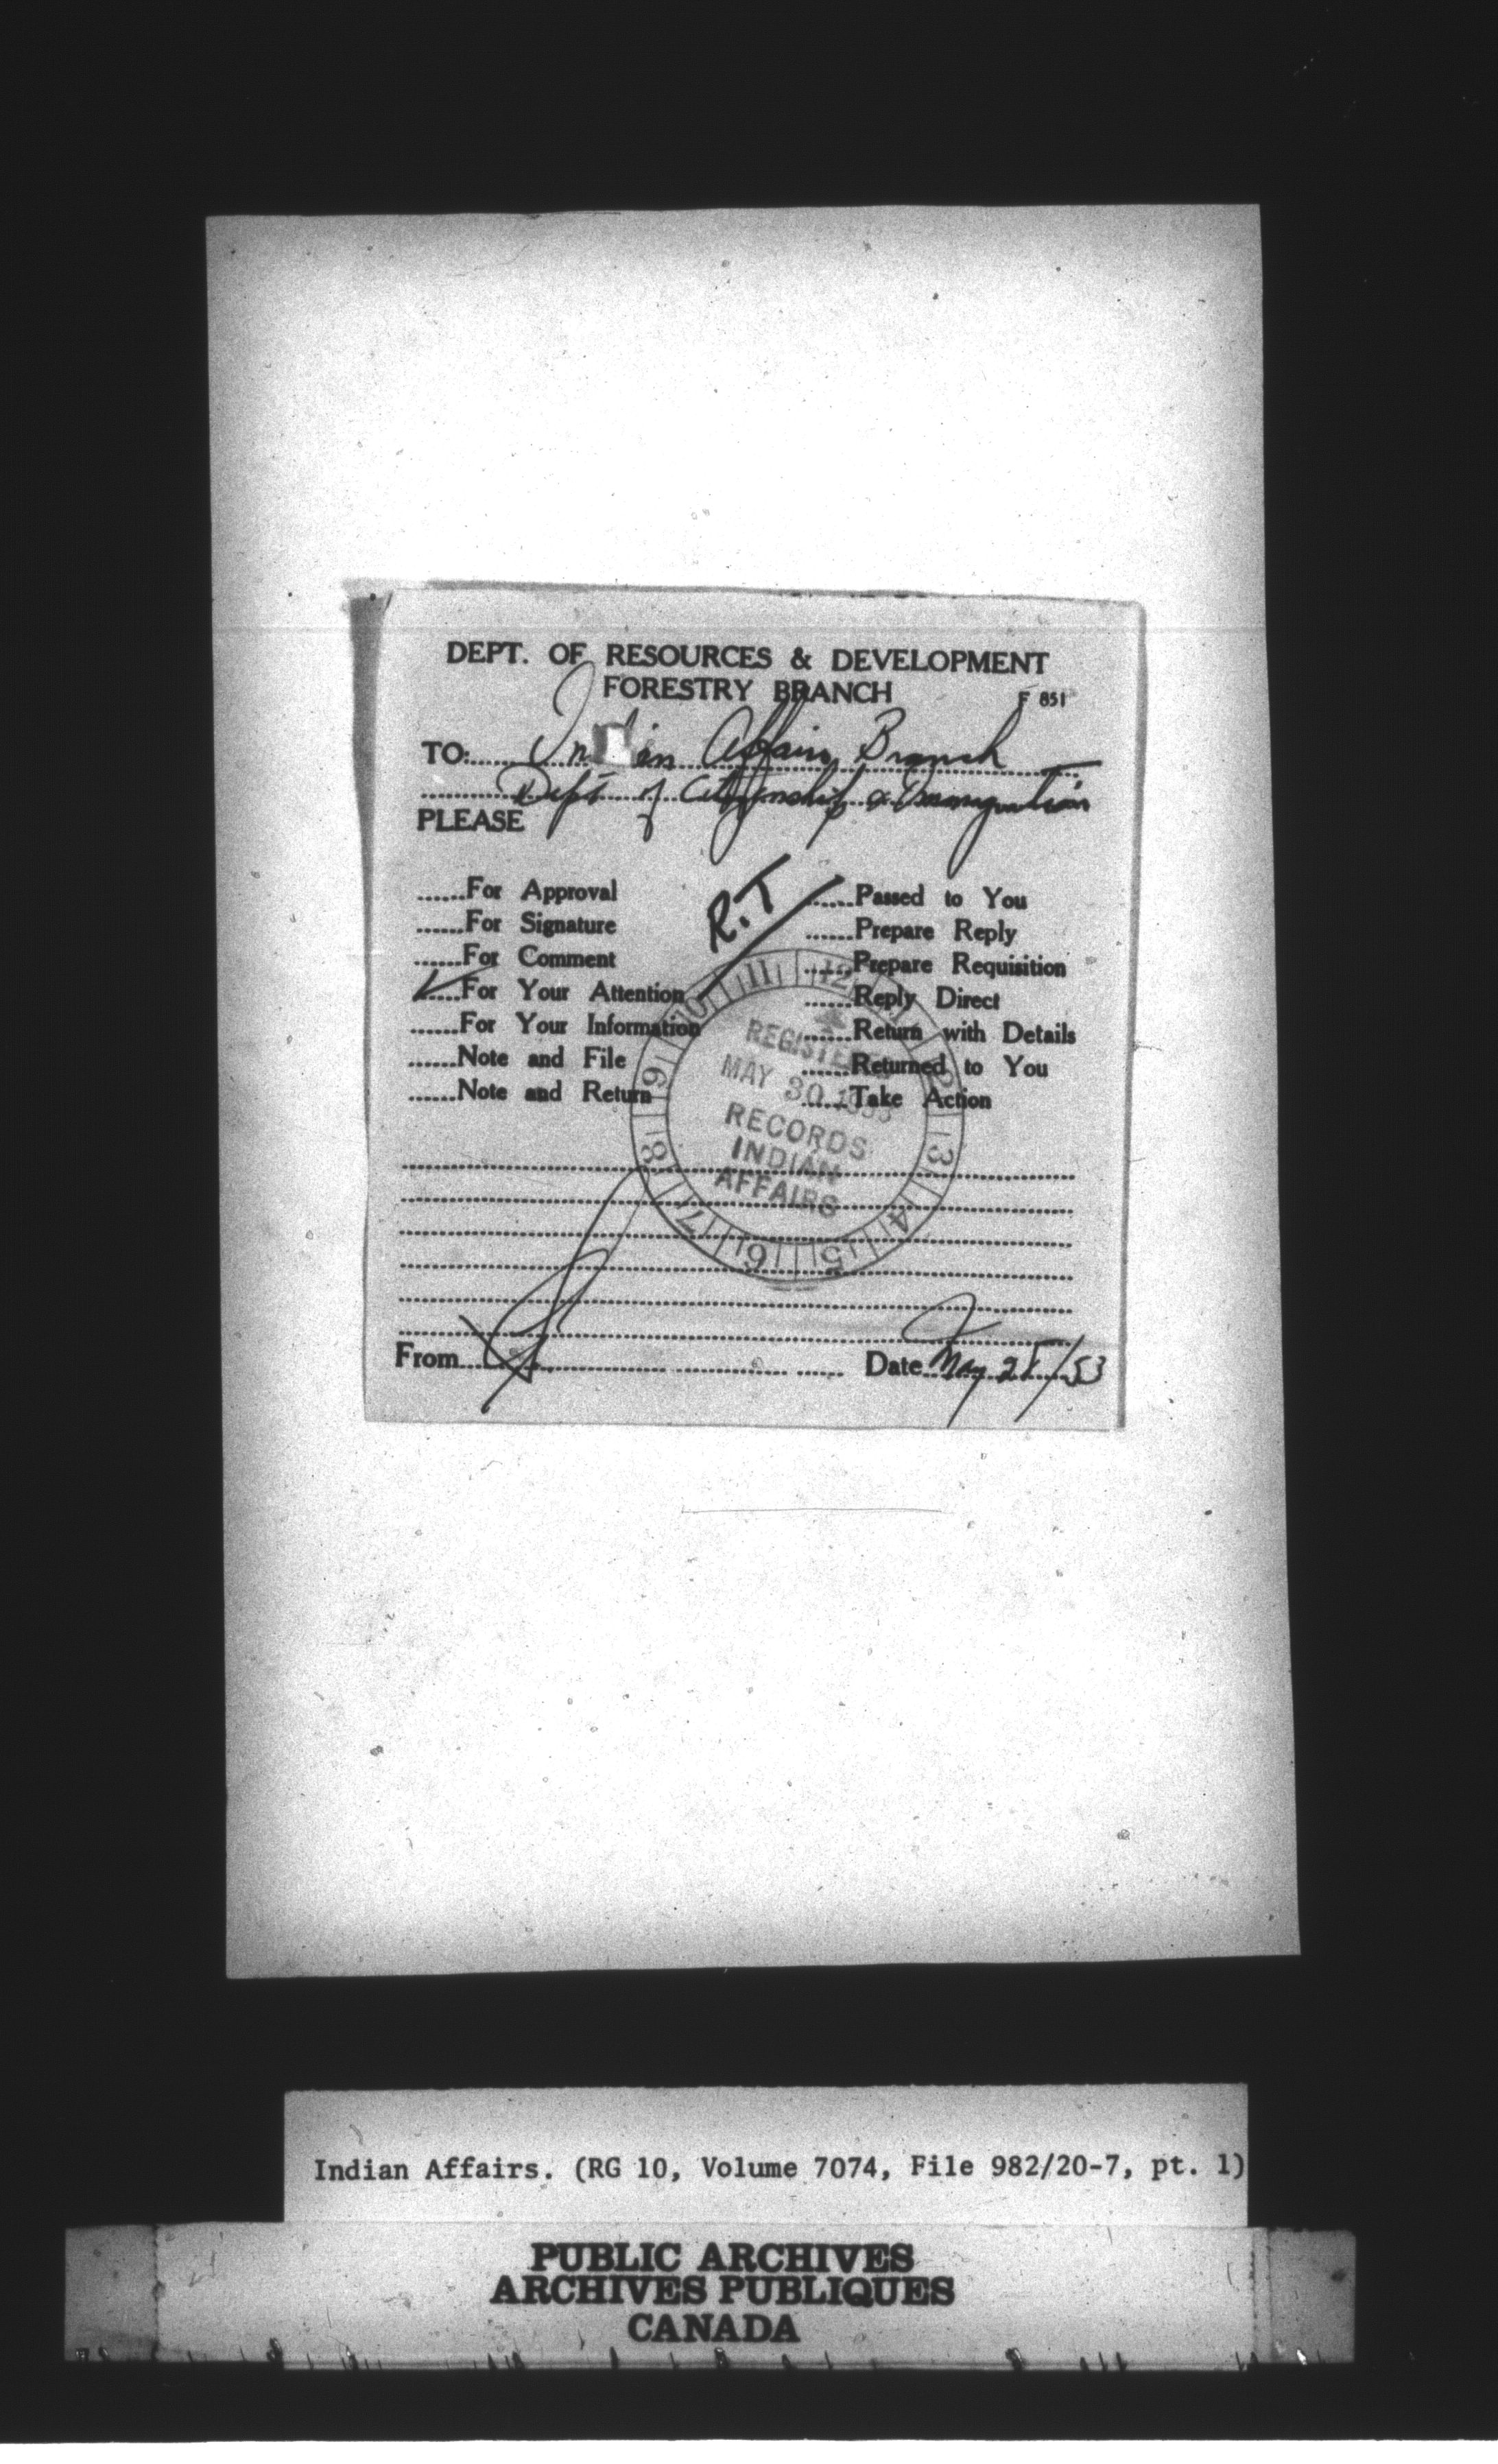 DEPT. OF RESOURCES & DEVELOPMENT
FORESTRY BRANCH
F 851
TO: Indian Affairs Branch
Dept of Citizenship & Immigration
PLEASE
R.T
......For Approval
......For Signature
......For Comment
......For Your Attention
......For Your Information
......Note and File
......Note and Return
......Passed to You
......Prepare Reply
......Prepare Requisition
......Reply Direct
......Return with Details
......Returned to You
......Take Action
11 12 2 3 4 5 6 7 8 9 10
REGISTERED
MAY 30 1953
RECORDS
INDIAN
AFFAIRS
From
Date May 28/53
Indian Affairs. (RG 10, Volume 7074, File 982/20-7, pt. 1)
PUBLIC ARCHIVES
ARCHIVES PUBLIQUES
CANADA